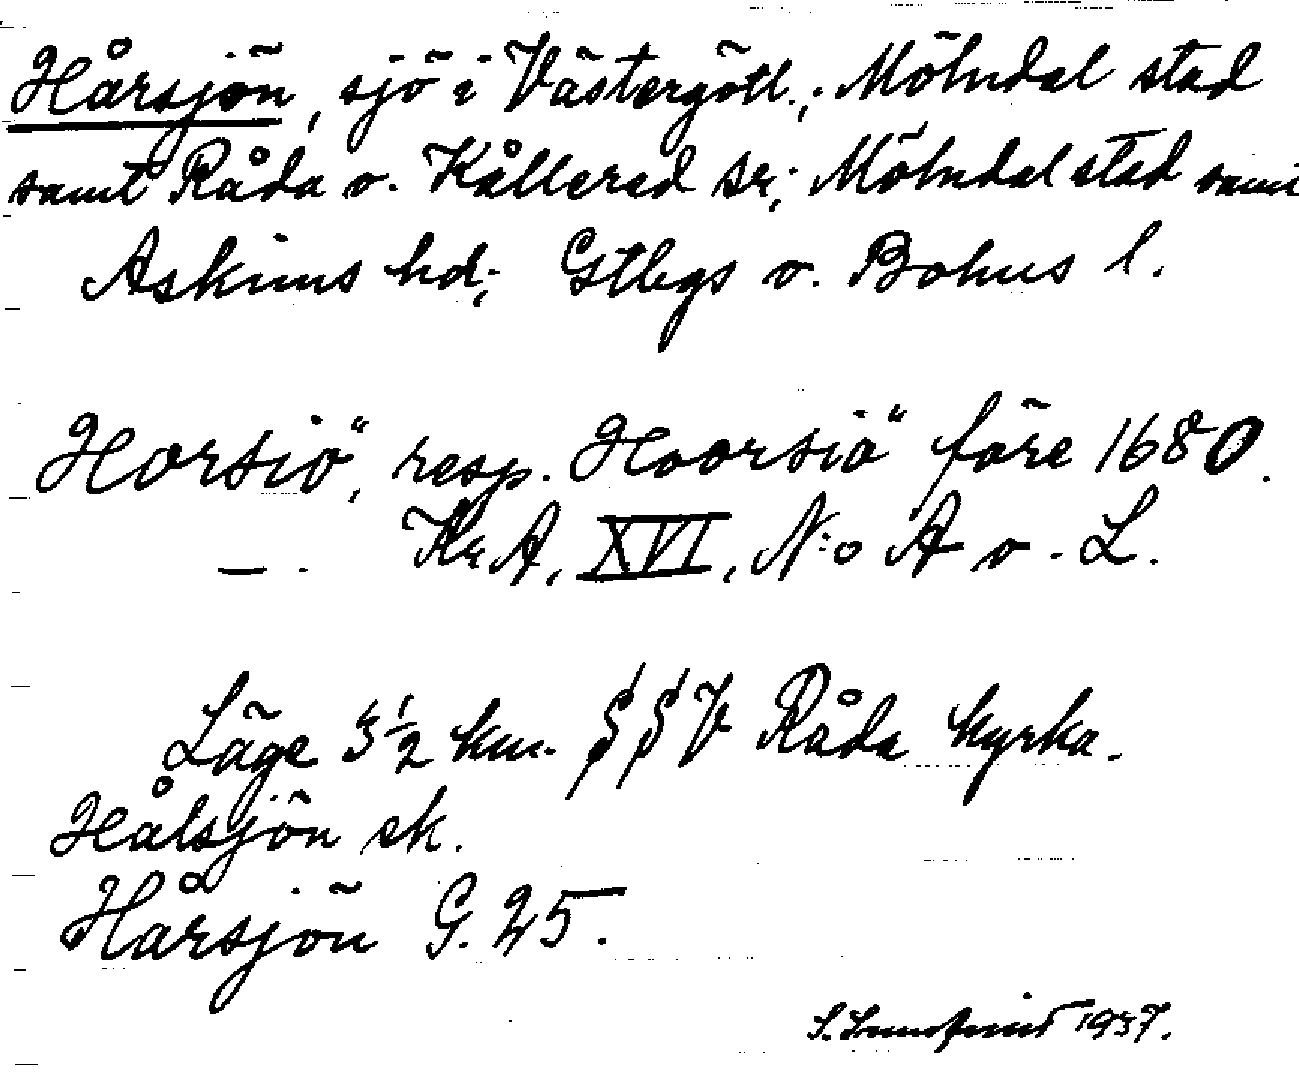 Hårsjön, sjö i Västergötl.; Mölndal stad
samt Råda o. Kållered sr; Mölndal stad samt
Askims hd; Gtbgs o. Bohus l.
Horsiö", resp. Hoorsiö" före 1680.
—. Kr A, XVI, N:o A o. L.
Läge 3 1/2 km. SSV Råda kyrka.
Hålsjön ek.
Hårsjön G. 25.
1937.